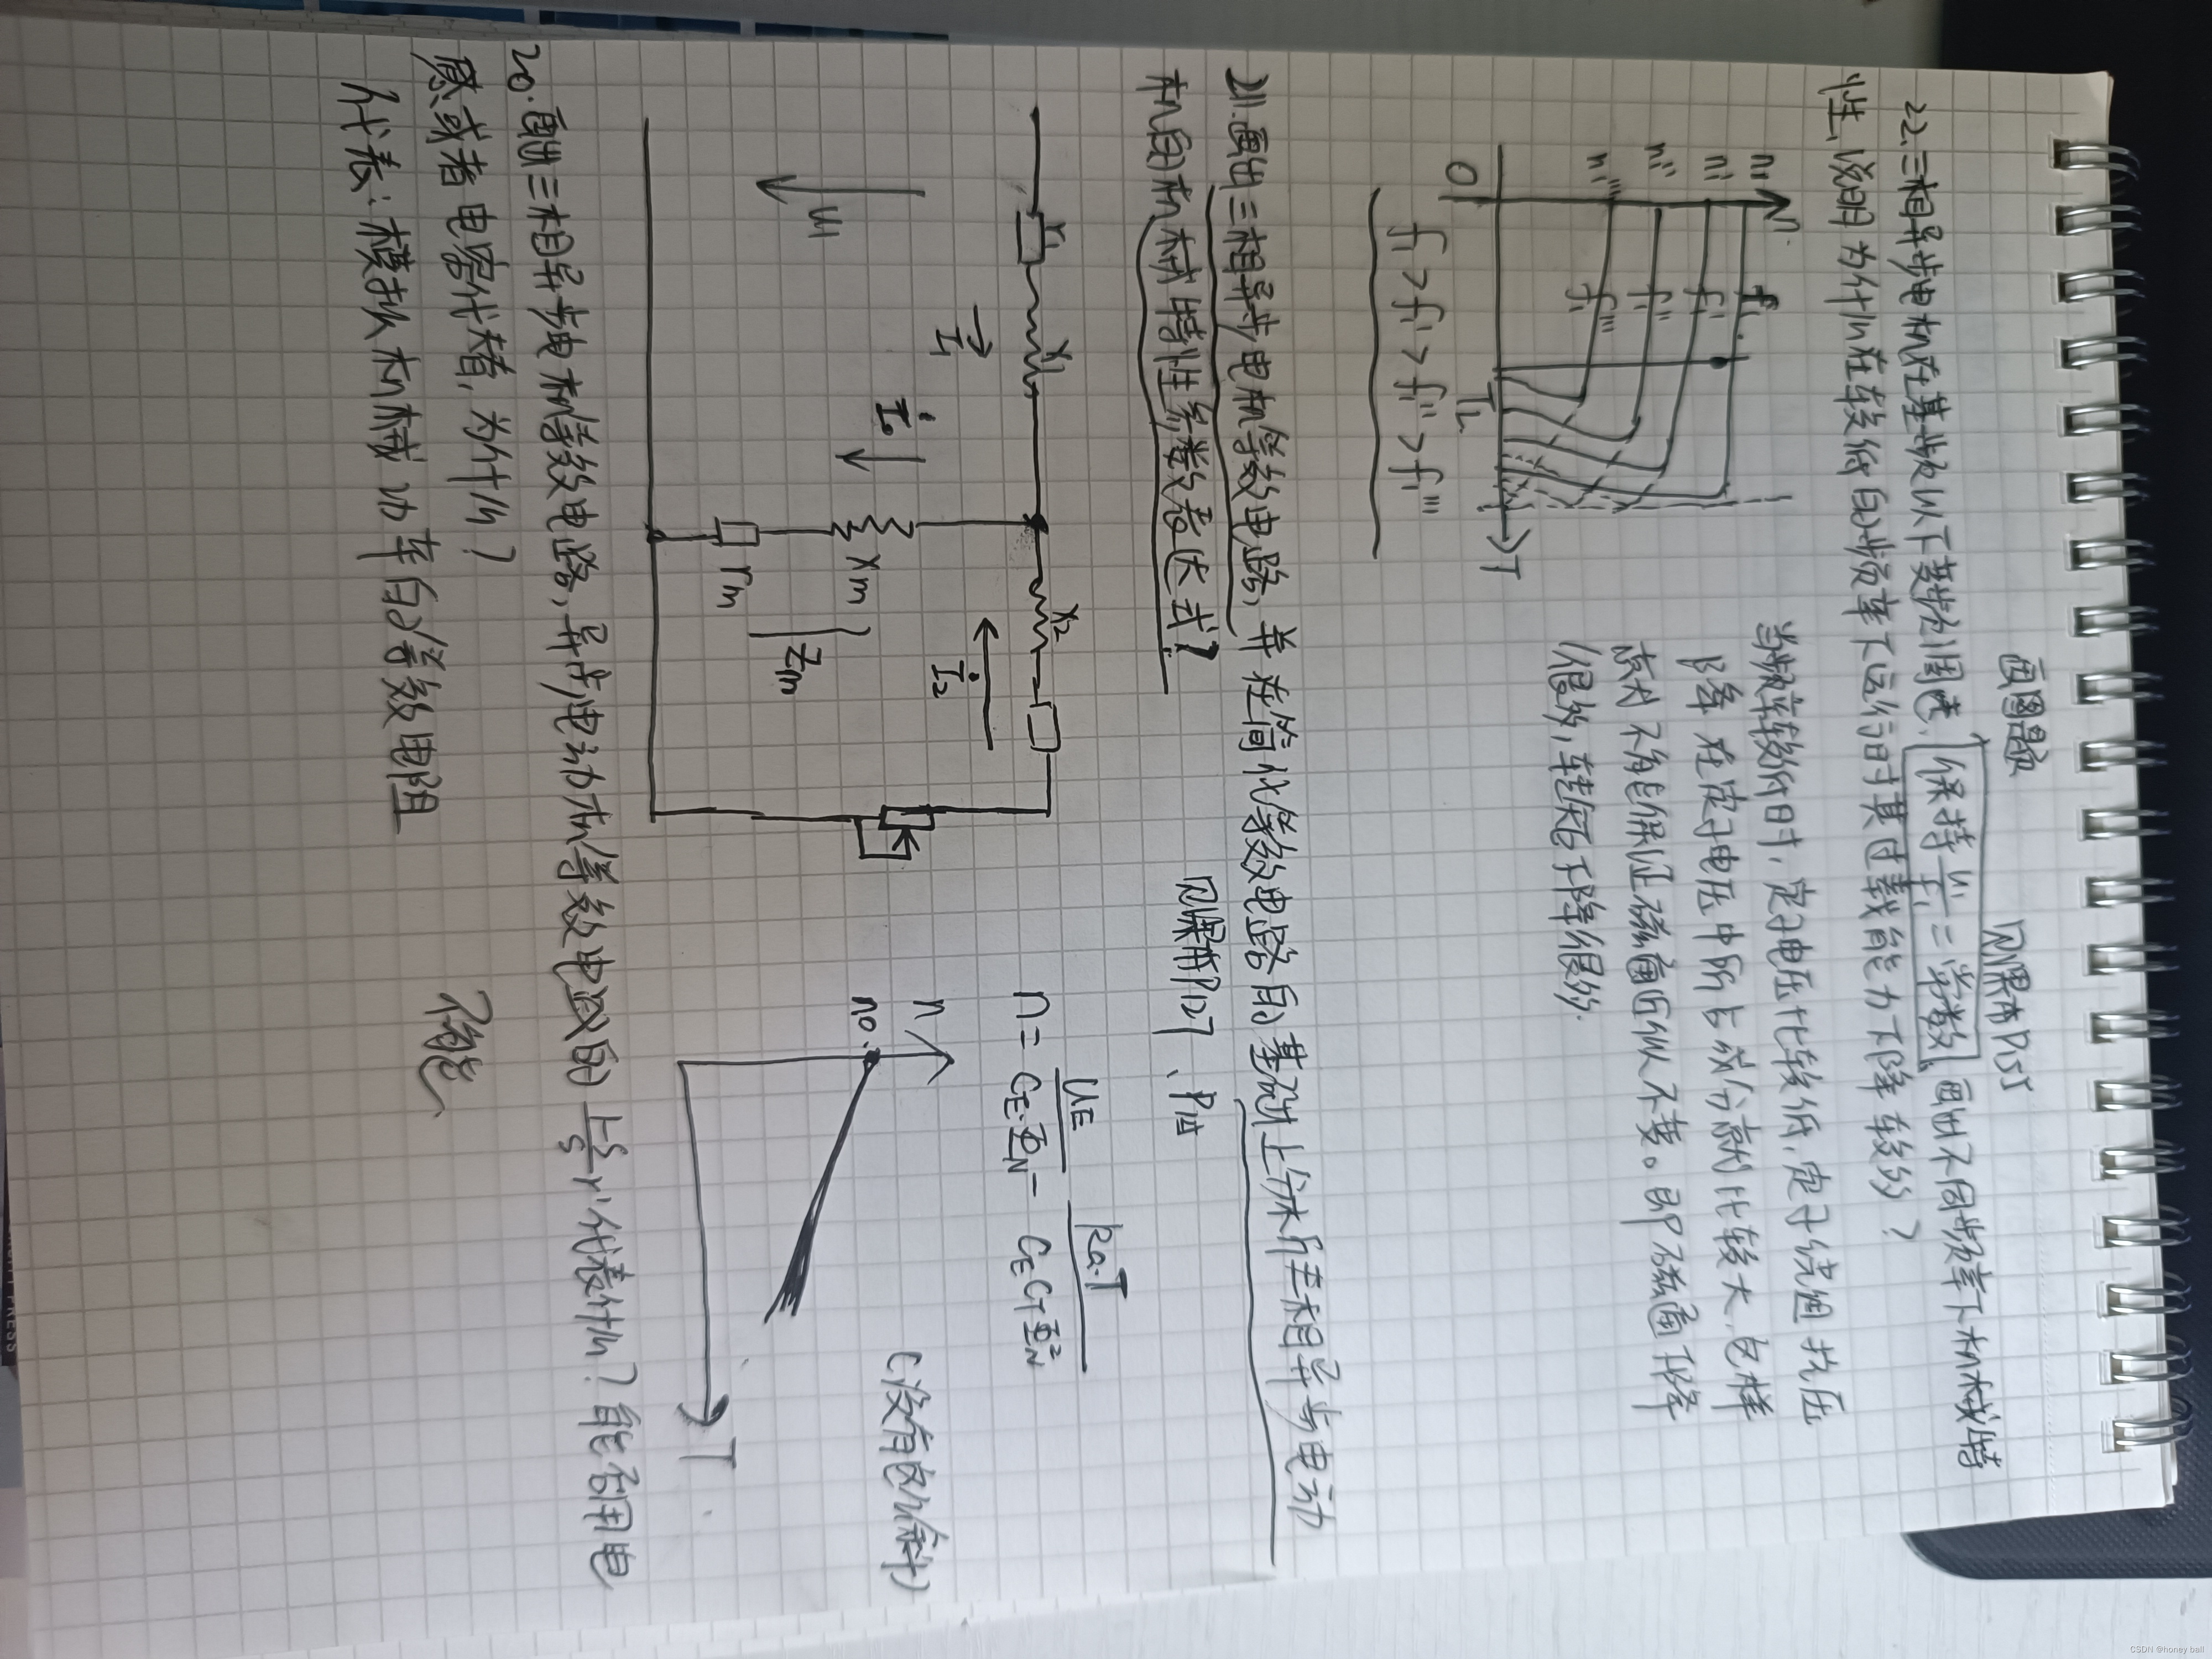 画图题
见课本P155
22.三相异步电机在基频以下变频调速,保持U₁/f₁=常数,画出不同频率下机械特
性,说明为什么在较低的频率下运行时其过载能力下降较多?
n
n₁
n₁'
n₁''
n₁'''
f₁
f₁'
f₁''
f₁'''
O
T_L
T
f₁>f₁'>f₁''>f₁'''
当频率较低时,定子电压比较低,定子绕组 抗压
降 在定子电压中所占成分就比较大,这样
就不能保证磁通近似不变。即磁通 下降
很多,转矩下降很多.
21.画出三相异步电机等效电路,并在简化等效电路的基础上分析三相异步电动
机的机械特性参数表达式?
见课本P127、P
r₁
x₁
x₂
U₁
I₁
İ₀
İ₂
xm
rm
Zm
n=UE/(CE·ΦN)-Ra·T/(CECTΦN²)
n
n₀
T
20.画出三相异步电机等效电路,异步电动机等效电路的(1-s)/s r₂'代表什么?能否用电
感或者电容代替,为什么?
不能
代表:模拟机械功率的等效电阻
CSDN @honey ball